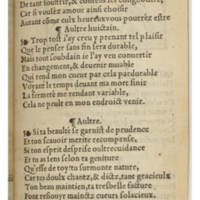 De tant souffrir, & contens les longoureux,
Car si voulez amour ainsi choisir
Autant côme cult heureux vous pourrez estre
¶ Aultre huictain.
¶ Trop tost j'ay creu y prenant tel plaisir
Que le penser sans fin sera durable,
Mais tout soubdain je l'ay veu convertir
En changement, & devenir muable
Qui rend mon cueur par cela pardurable
Voyant le temps devant moy s'en finir
La fermeté me rendant variable,
Cela ne peult en mon endroict venir.
¶ Aultre.
¶ Si ta beaulté se garnist de prudence
Et ton scavoir merite recompense,
Si ton esprit desprise oultrecuidance
Et tu as sens selon ta geniture
Qu'esse de toy tu surmonte nature,
Car tes doulx chantz, & dictz, tant gracieulx
Ton beau maintien, ta tresbelle facture
Font resouyr maintz cueurs solacieux.